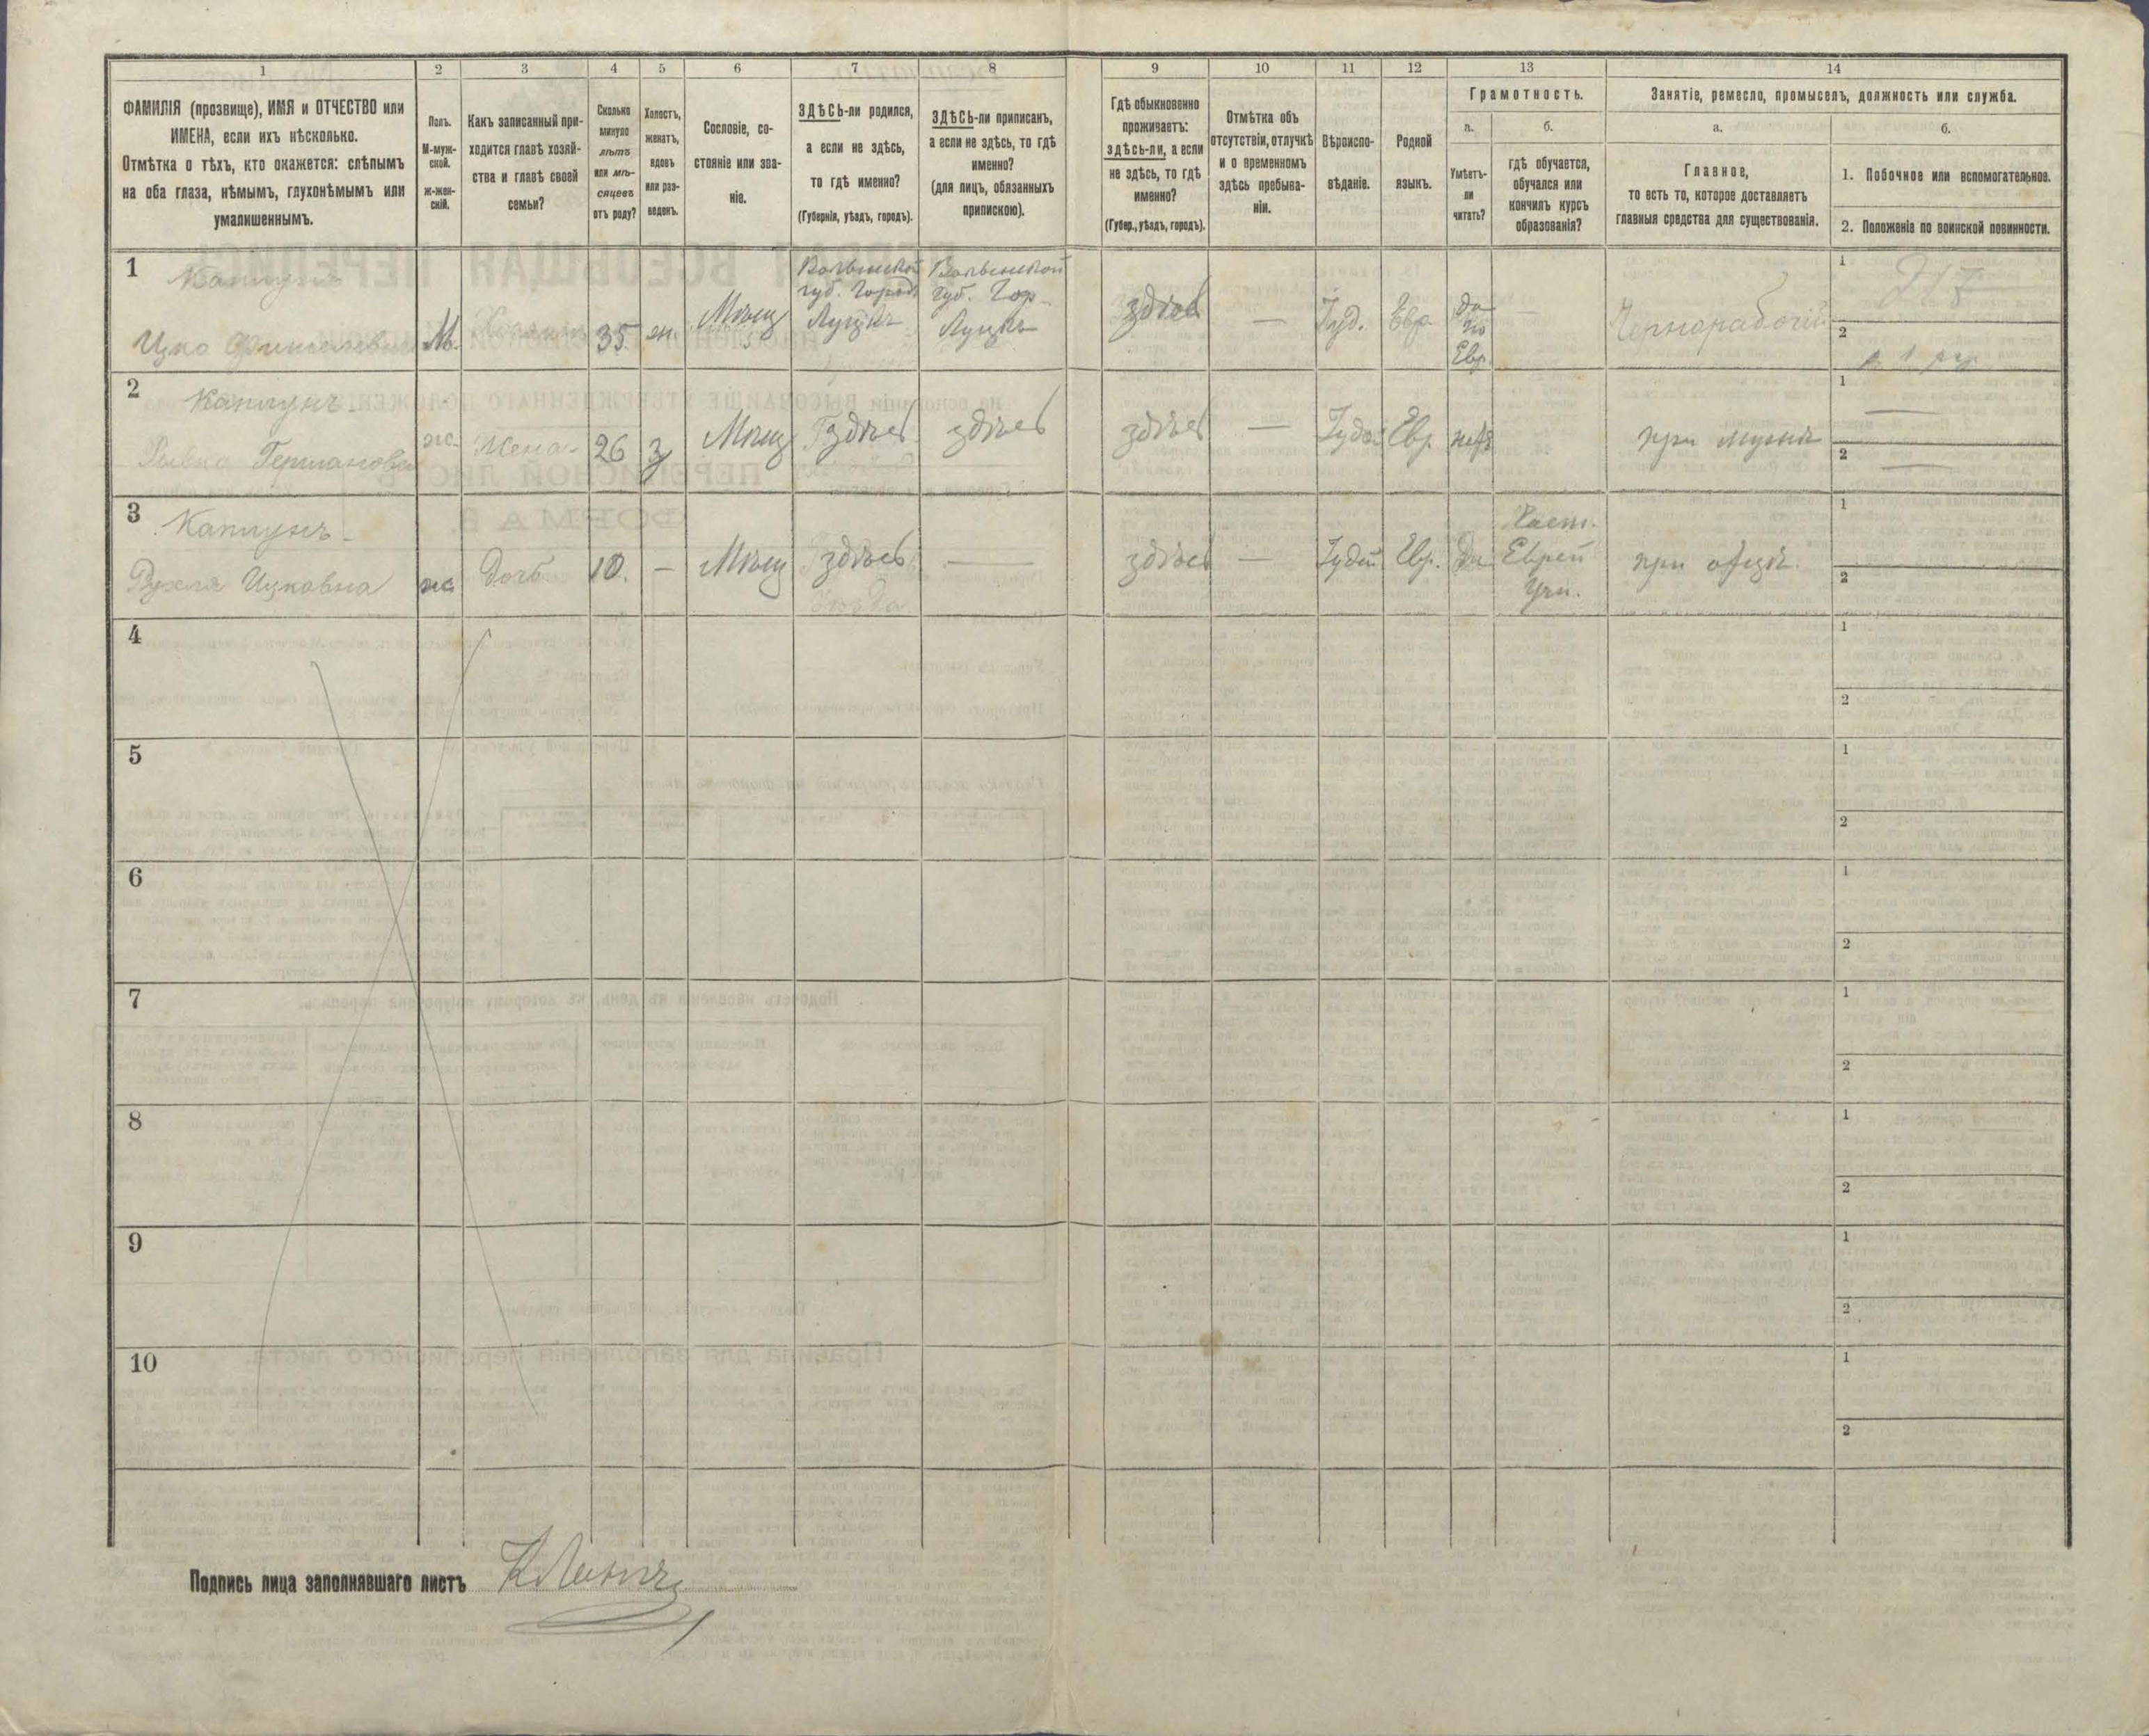 1
2
3
4
5
6
7
8
9
10
11
12
13
14
ФАМИЛІЯ (прозвище), ИМЯ и ОТЧЕСТВО или
ИМЕНА, если ихъ нѣсколько.
Отмѣтка о тѣхъ, кто окажется: слѣпымъ
на оба глаза, нѣмымъ, глухонѣмымъ или
умалишеннымъ.
Полъ.
М-муж-
ской.
ж-жен-
скій.
Какъ записанный при-
ходится главѣ хозяй-
ства и главѣ своей
семьи?
Сколько
минуло
лѣтъ
или мѣ-
сяцевъ
отъ роду?
Холостъ,
женатъ,
вдовъ
или раз-
веденъ.
Сословіе, со-
стояніе или зва-
ніе.
ЗДѢСЬ-ли родился,
а если не здѣсь,
то гдѣ именно?
(Губернія, уѣздъ, городъ).
ЗДѢСЬ-ли приписанъ,
а если не здѣсь, то гдѣ
именно?
(для лицъ, обязанныхъ
припискою).
Гдѣ обыкновенно
проживаетъ:
здѣсь-ли, а если
не здѣсь, то гдѣ
именно?
(Губер., уѣздъ, городъ).
Отмѣтка объ
отсутствіи, отлучкѣ
и о временномъ
здѣсь пребыва-
ніи.
Вѣроиспо-
вѣданіе.
Родной
языкъ.
Грамотность.
а.
Умѣетъ-
ли
читать?
б.
гдѣ обучается,
обучался или
кончилъ курсъ
образованія?
Занятіе, ремесло, промыселъ, должность или служба.
а.
Главное,
то есть то, которое доставляетъ
главныя средства для существованія.
б.
1. Побочное или вспомогательное.
2. Положеніе по воинской повинности.
1
Каплунъ
Ицко
М.
Хозяинъ
35
ж.
Мѣщ
Волынской
губ. Городъ
Луцкъ
Волынской
губ. Гор.
Луцкъ
здѣсь
—
Іуд.
Евр.
да
по
Евр.
—
Чернорабочій
1
2
2
Каплунъ
Рывка Германовна
ж.
Жена
26
з
Мѣщ
здѣсь
здѣсь
здѣсь
—
Іудей
Евр.
нетъ
при мужѣ
1
—
2
—
3
Каплунъ
Рухля Ицковна
ж
дочь
10.
—
Мѣщ
здѣсь
—
здѣсь
—
Іудей
Евр.
да
Част.
Еврей
Учи.
при отцѣ.
1
2
4
1
2
5
1
2
6
1
2
7
1
2
8
1
2
9
1
2
10
1
2
Подпись лица заполнявшаго листъ